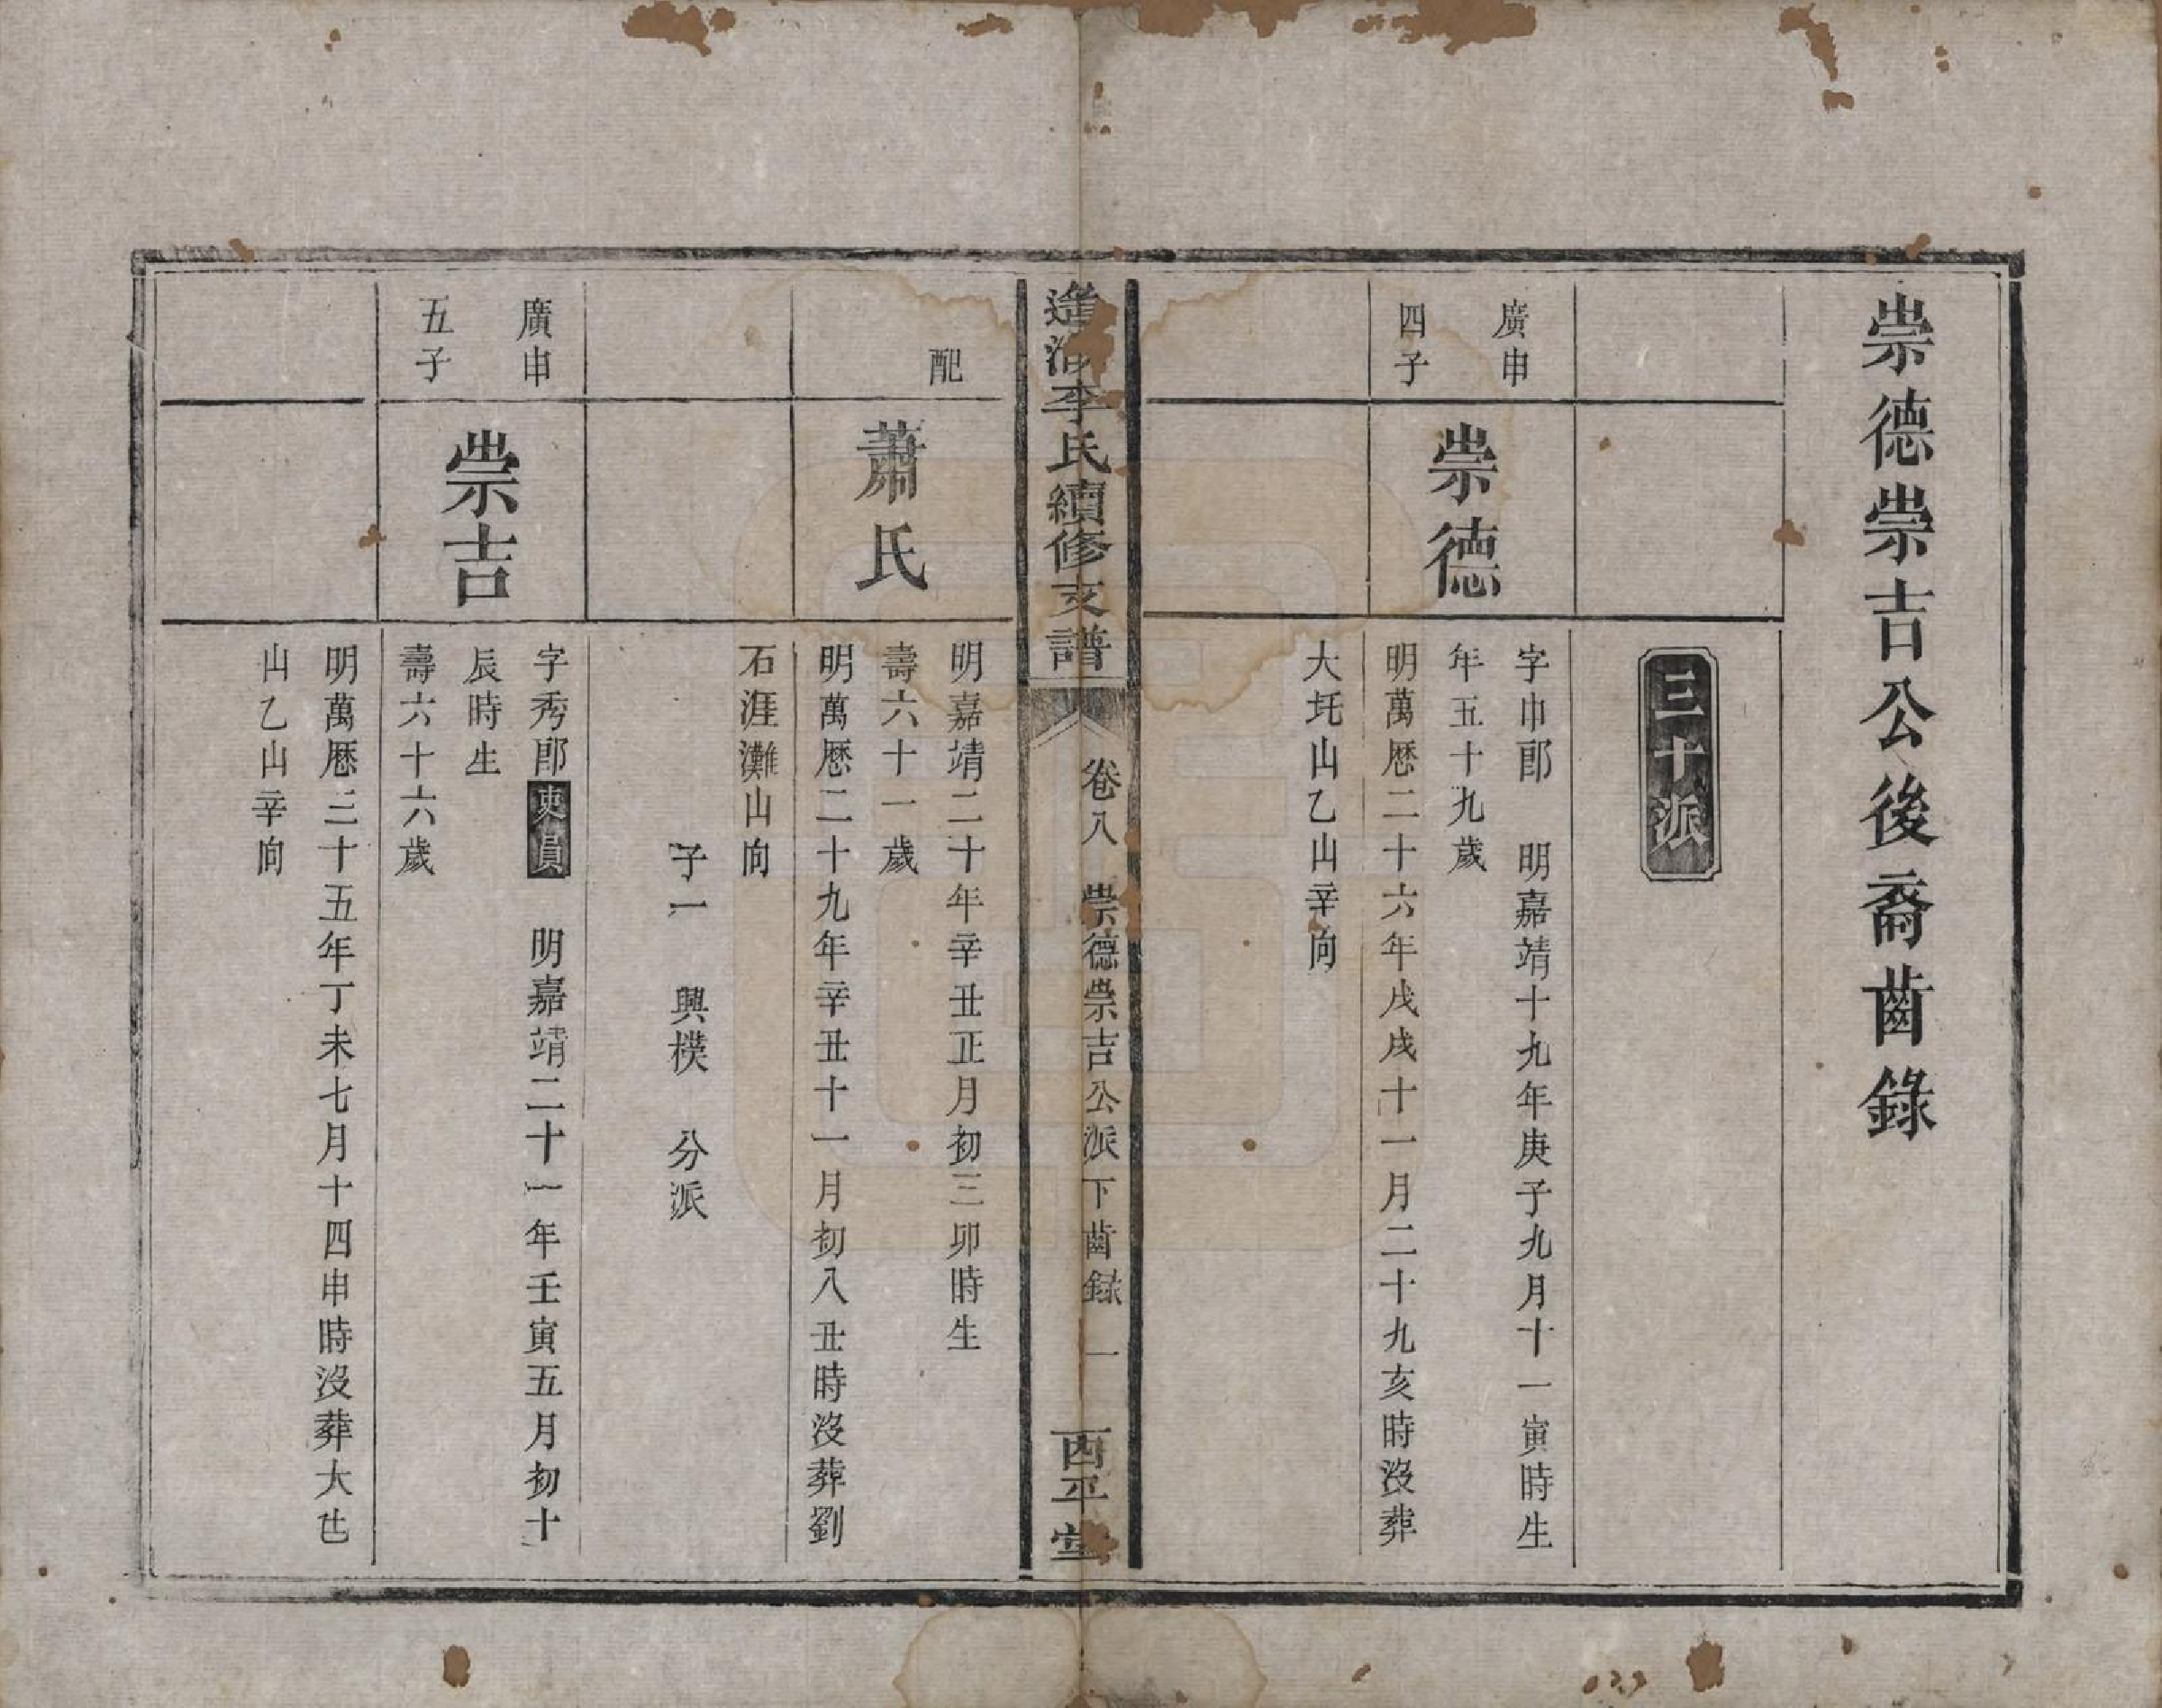 崇德崇吉公後裔齒錄
三十派
廣申
四子
崇德
字巾郎　明嘉靖十九年庚子九月十一寅時生
年五十九歲
明萬厯二十六年戊戌十一月二十九亥時沒葬
大圫山乙山辛向
李氏續修支譜
卷八　崇德崇吉公派下齒錄　一
西平堂
配
蕭氏
明嘉靖二十年辛丑正月初三卯時生
壽六十一歲
明萬厯二十九年辛丑十一月初八丑時沒葬劉
石涯灘山向
子一　興樸　分派
廣申
五子
崇吉
字秀郎吏員　明嘉靖二十一年壬寅五月初十
辰時生
壽六十六歲
明萬厯三十五年丁未七月十四申時沒葬大
山乙山辛向